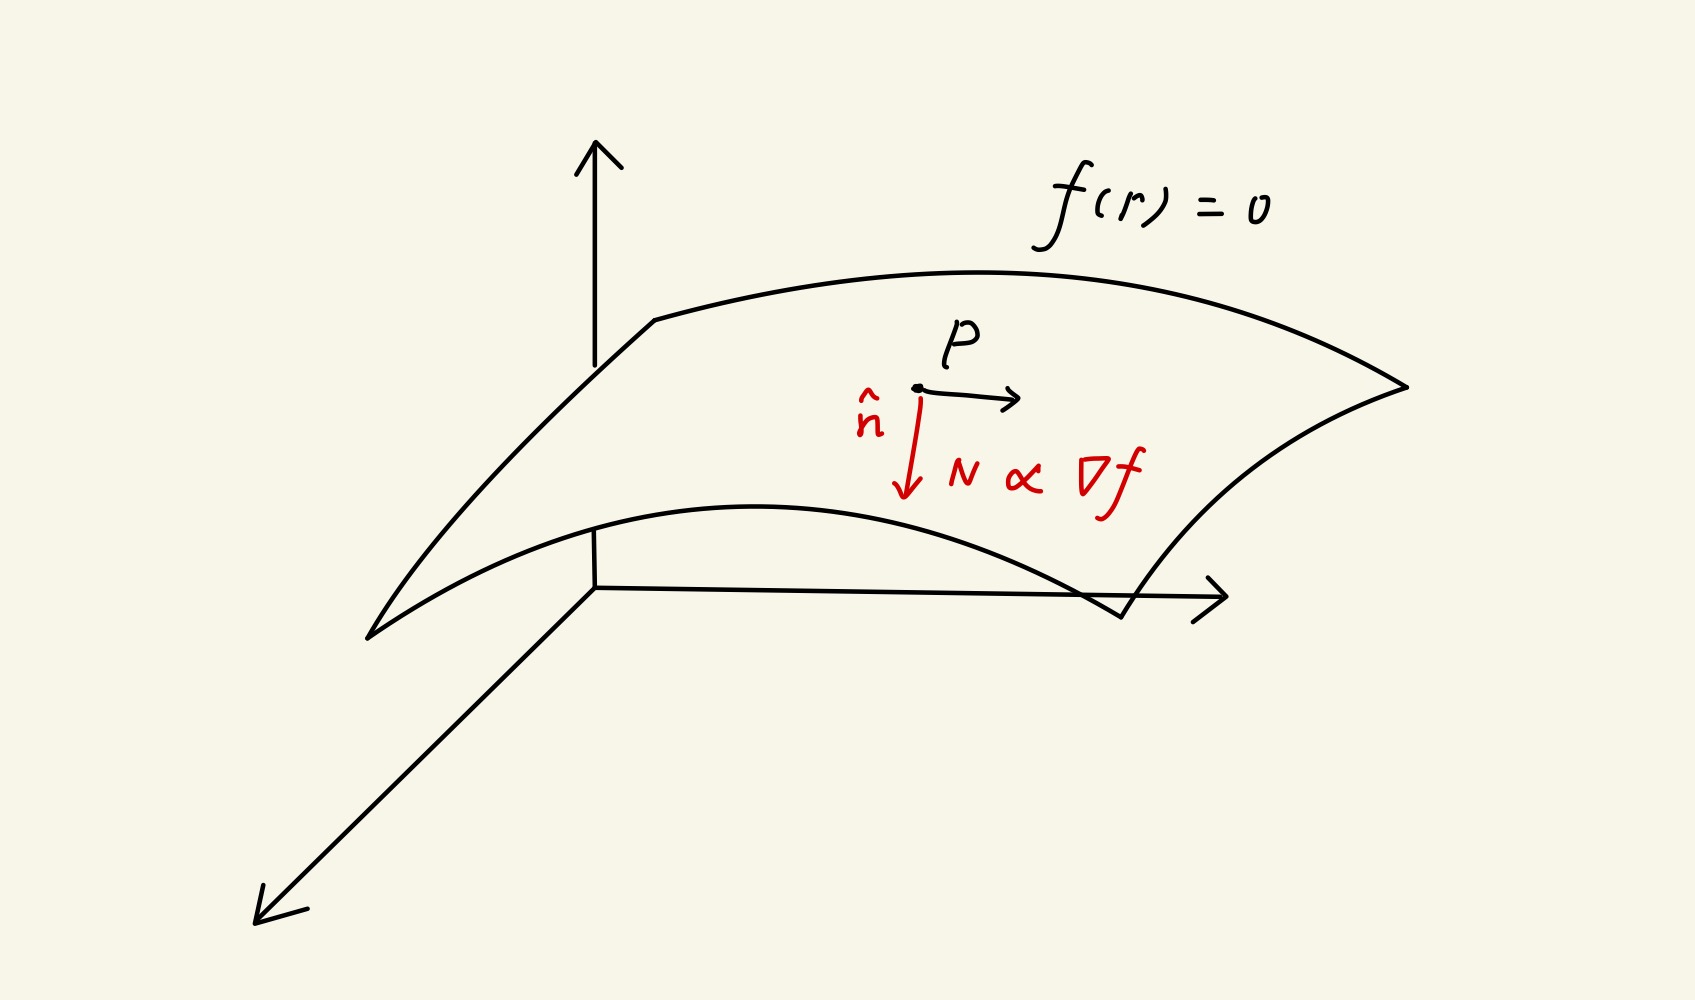 f(r) = 0
P
n̂
N ∝ ∇f